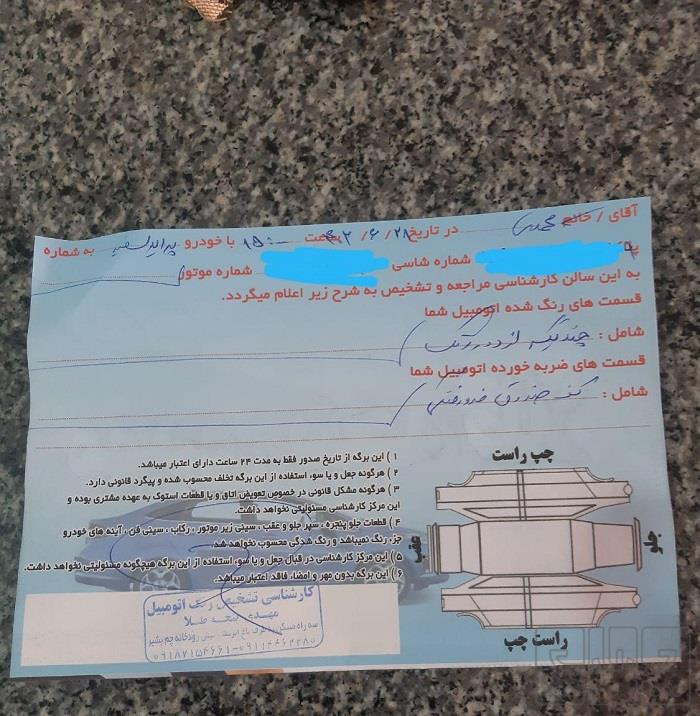 آقای / خانم محمدی در تاریخ ۲۸ / ۶ / ۴۲ ساعت ۱۵:۰۰ با خودرو پراید سفید به شماره
شماره شاسی شماره موتور
به این سالن کارشناسی مراجعه و تشخیص به شرح زیر اعلام میگردد.
قسمت های رنگ شده اتومبیل شما
شامل : چند تیکه از دور رنگ
قسمت های ضربه خورده اتومبیل شما
شامل : کف صندوق فرورفتگی
۱ ) این برگه از تاریخ صدور فقط به مدت ۲۴ ساعت دارای اعتبار میباشد.
۲ ) هرگونه جعل و یا سوء استفاده از این برگه تخلف محسوب شده و پیگرد قانونی دارد.
۳ ) هرگونه مشکل قانونی در خصوص تعویض اتاق و یا قطعات استوک به عهده مشتری بوده و
این مرکز کارشناسی مسئولیتی نخواهد داشت.
۴ ) قطعات جلو پنجره ، سپر جلو و عقب ، سینی زیر موتور ، رکاب ، سینی فن ، آینه های خودرو
جزء رنگ نمیباشد و رنگ شدگی محسوب نخواهد شد.
۵ ) این مرکز کارشناسی در قبال جعل و یا سوء استفاده از این برگه هیچگونه مسئولیتی نخواهد داشت.
۶ ) این برگه بدون مهر و امضاء فاقد اعتبار میباشد.
چپ راست
جلو
عقب
راست چپ
کارشناسی تشخیص رنگ اتومبیل
مهدی پنجه طلا